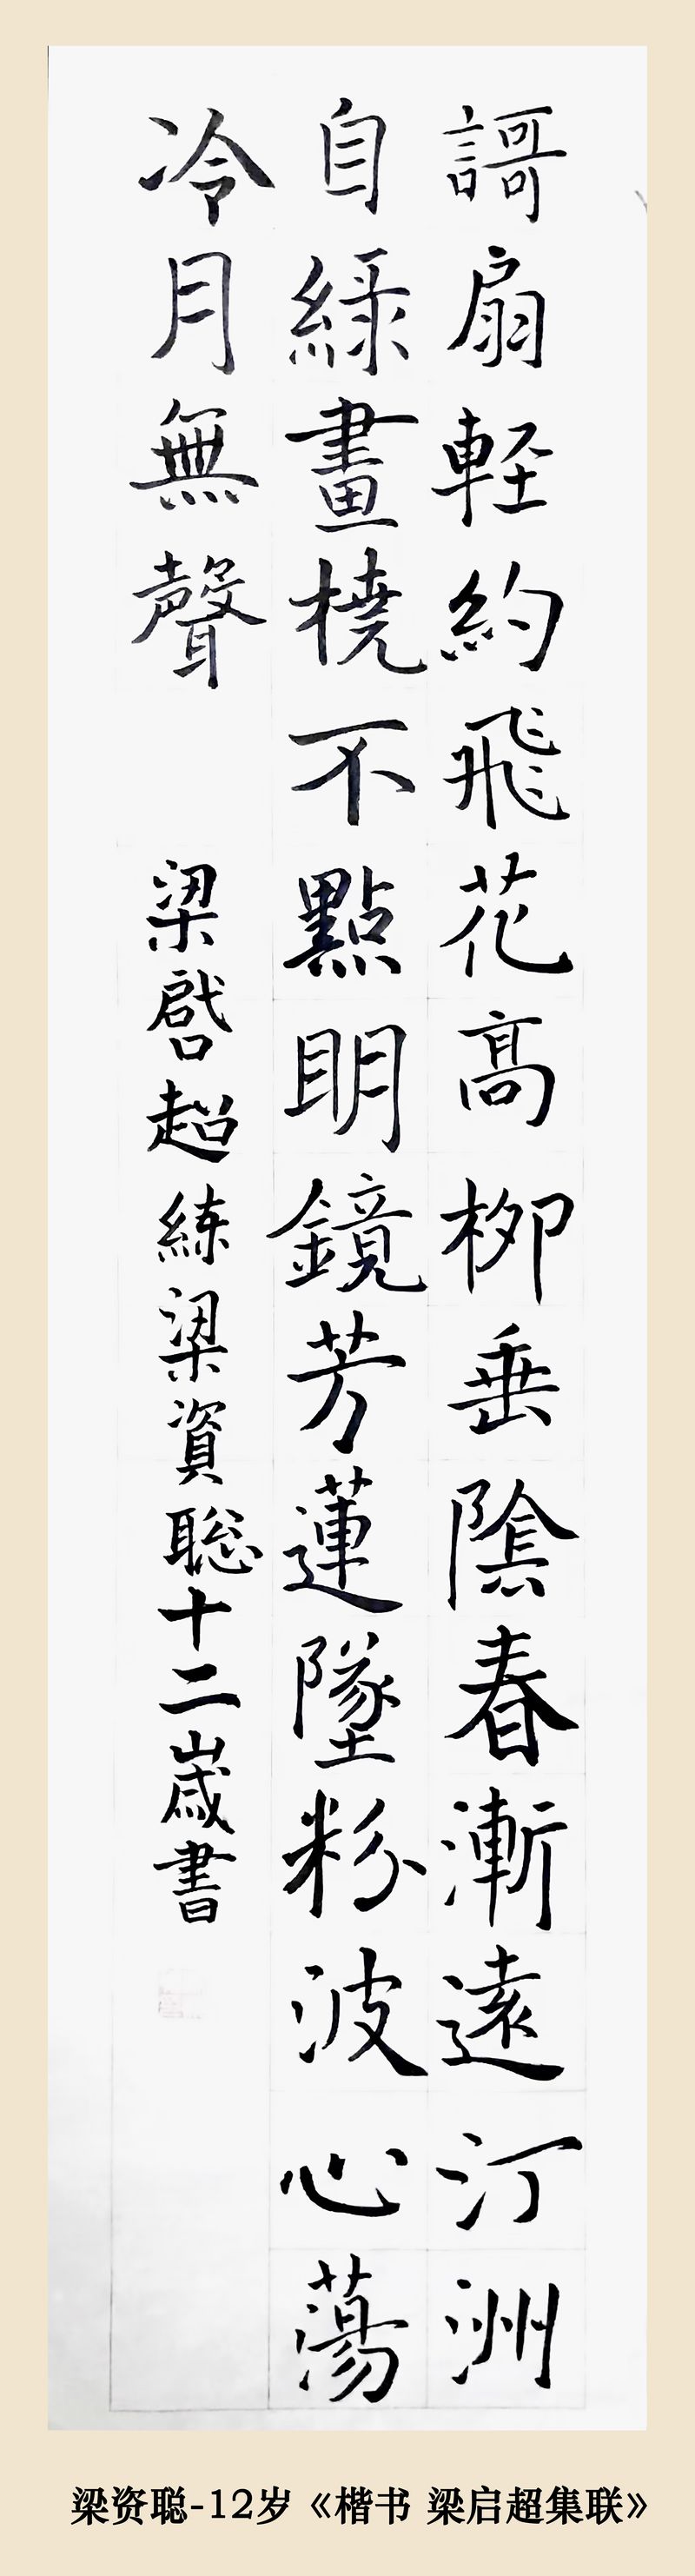 謌扇軽約飛花高柳垂陰春漸遠汀洲
自綠畫橈不點明鏡芳蓮墜粉波心蕩
冷月無聲
梁啓超練梁資聪十二歲書
梁资聪-12岁《楷书 梁启超集联》